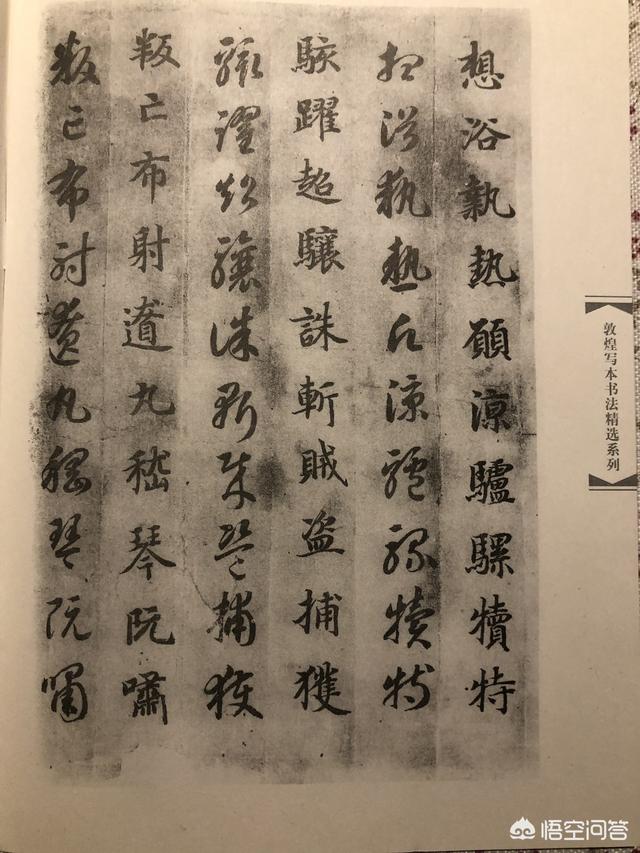 想浴執熱願涼驢騾犢特
想浴執熱願涼驢騾犢特
駭躍超驤誅斬賊盗捕獲
駭躍超驤誅斬賊盗捕獲
叛亡布射遼丸嵇琴阮嘯
叛亡布射遼丸嵇琴阮嘯
敦煌写本书法精选系列
悟空问答